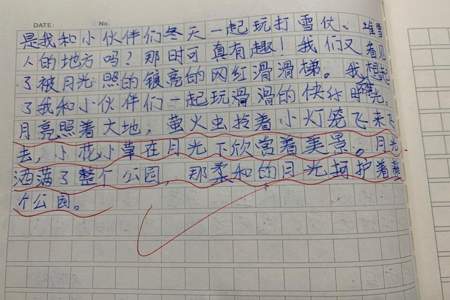 DATE: No.
是我和小伙伴们冬天一起玩打雪仗、堆雪
人的地方吗？那时可真有趣！我们又看见
了被月光照的锃亮的网红滑滑梯。我想起
了我和小伙伴们一起玩滑滑的快乐时光。
月亮照着大地，萤火虫拎着小灯笼飞来飞
去，小花小草在月光下欣赏着美景。月光
洒满了整个公园，那柔和的月光抚护着整
个公园。